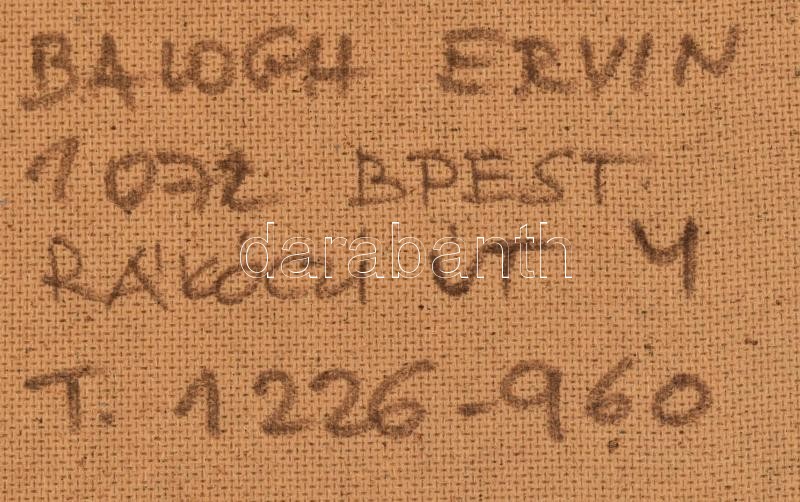 BALOGH ERVIN
1072 BPEST.
RÁKÓCZI ÚT 4
darabanth
T. 1226-960